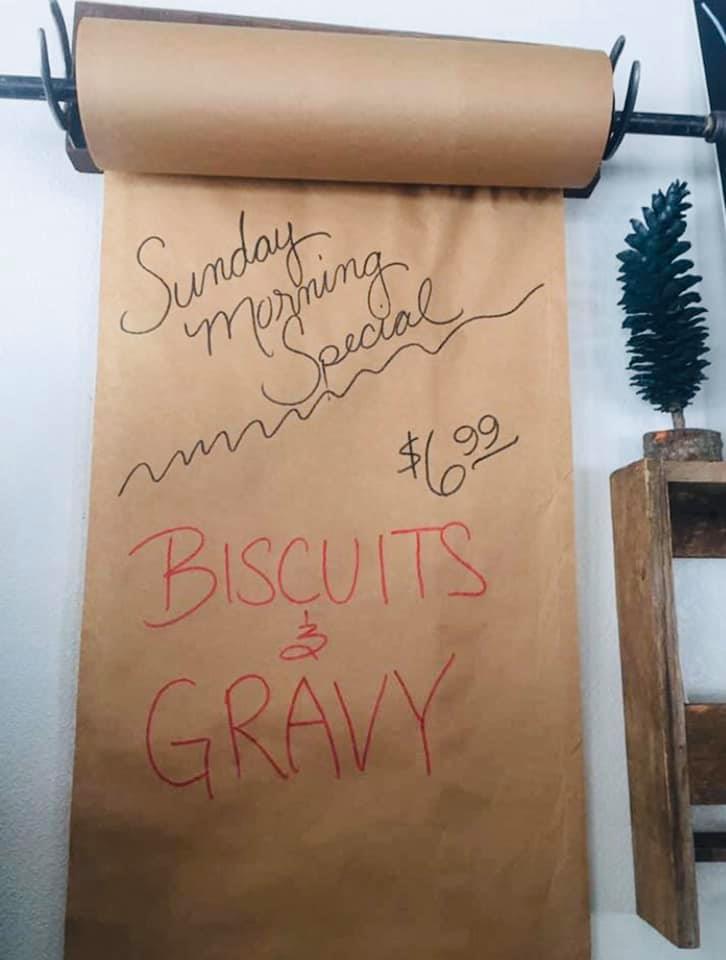 Sunday
Morning
Special
$6.99
BISCUITS
&
GRAVY